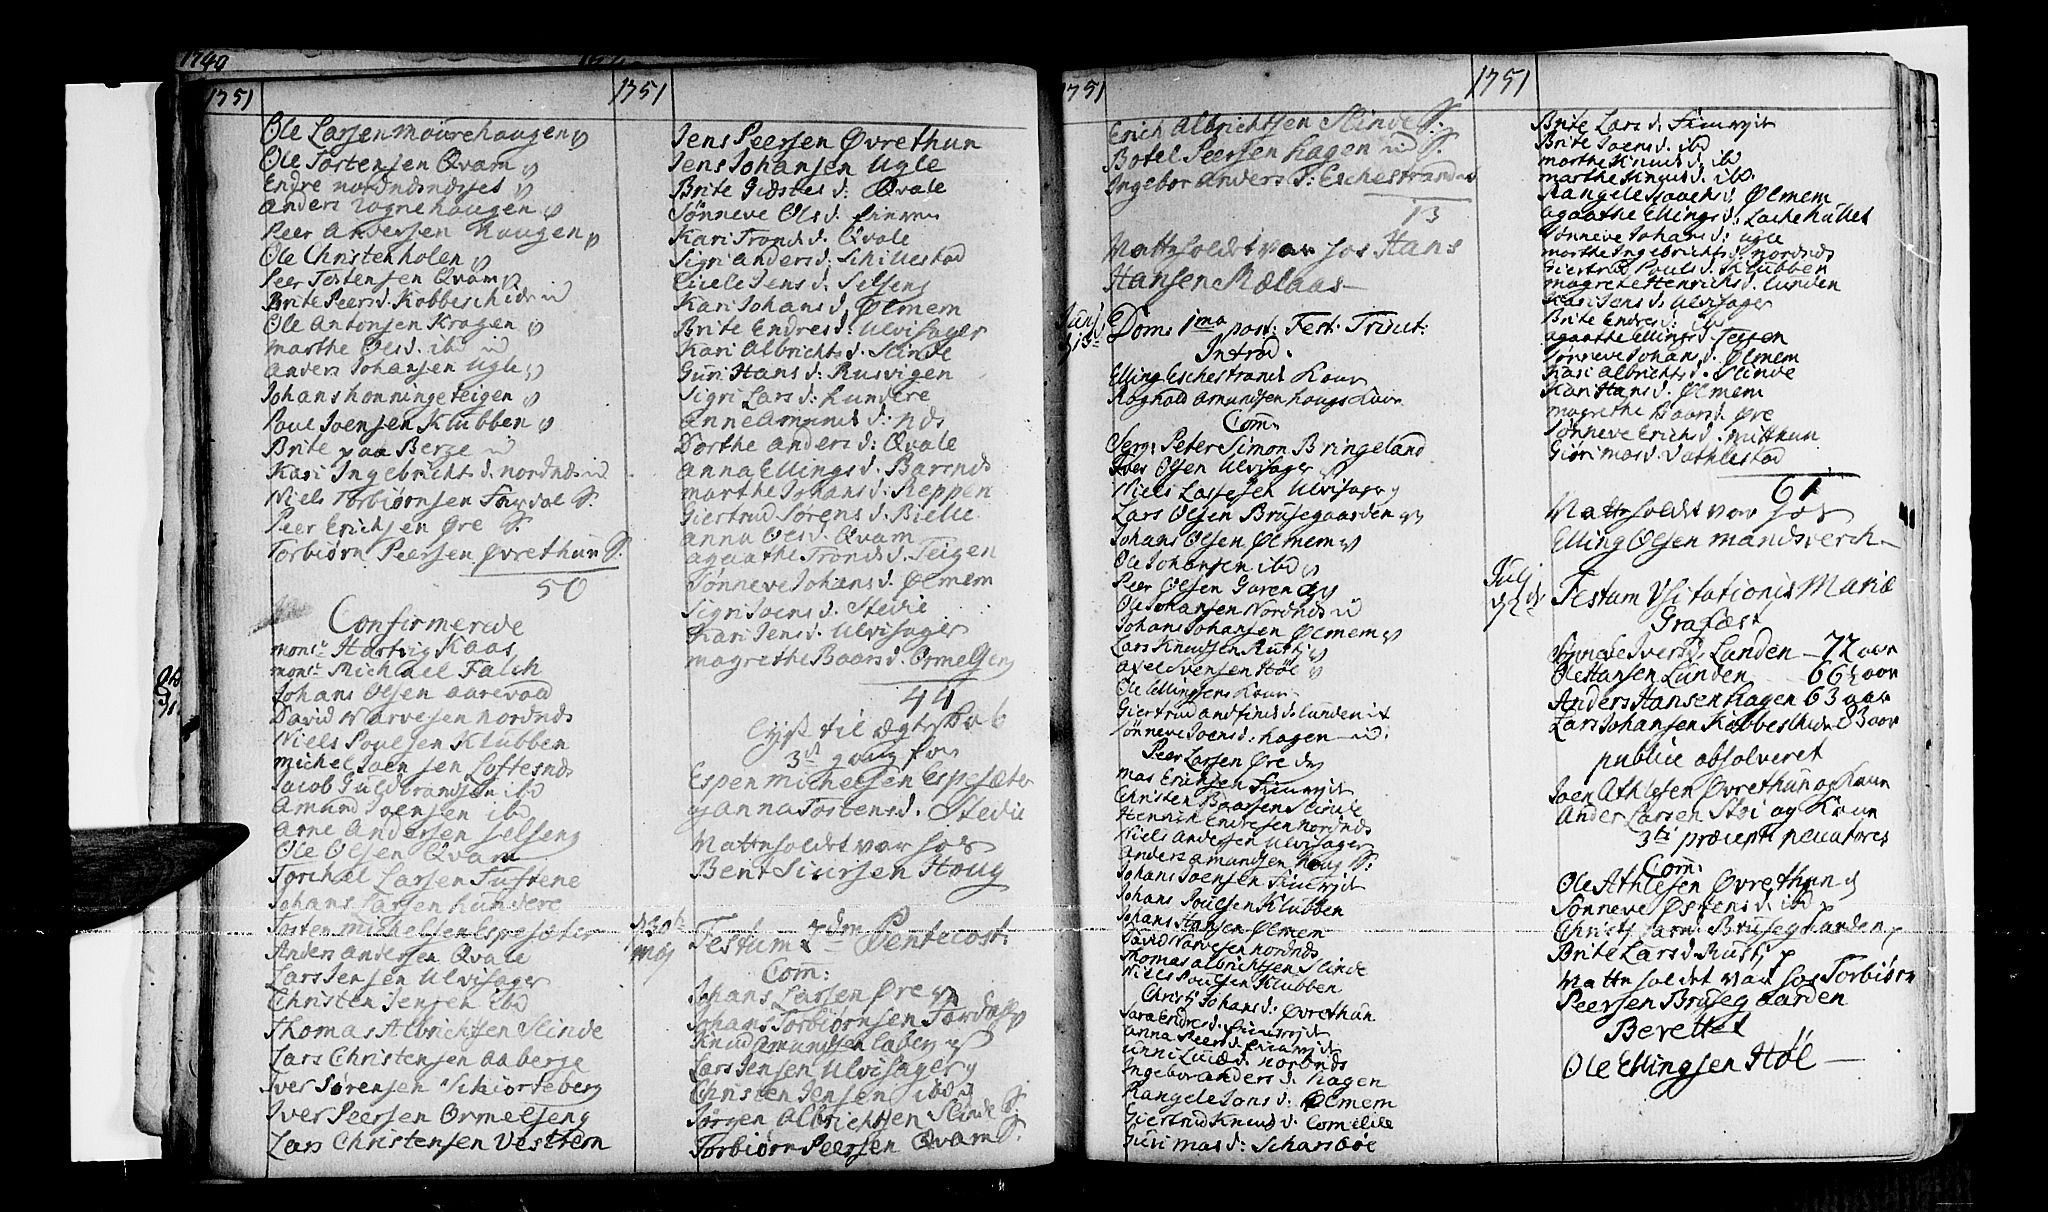 1740
1751
Ole Larsen Mourehaugen
Ole Tostensen Qvam
Endre nordnds
Anders Rognehaugen
Peer Andersen Haugen
Ole Christenholen
Peer Tostensen Qvam
Brite Peersd. Kobbeschide
Ole Antonsen Krogen
Marthe Olsd. ibd
Anders Johansen Ugle
Johans Honningeteigen
Poul Joensen Klubben
Brite paa Berge
Kari Ingebrichts d. nordnds
Niels Torbiørnsen Fardal S.
Peer Erichsen Øre S.
Torbiørn Peersen Øvrethun S.
50
Confirmerede
mons: Hartvig Kaas
mons: Michael Falch
Johans Olsen Aarevold
David Narvesen nordnds
Niels Poulsen Klubben
Michel Joensen Loftesnds
Jacob Guldbrandsen ibd
Amund Joensen ibd
Arne Andersen Selseng
Ole Olsen Qvam
Torchel Larsen Tuftene
Johans Larsen Hundere
Tosten Michelsen Espesæter
Anders Andersen Qvale
Lars Jensen Ulvisager
Christen Jensen ibd
Thomas Albrichtsen Slinde
Lars Christensen Aaberge
Iver Sørensen Schiorteberg
Iver Peersen Ormelseng
Lars Christensen Vestrem
1751
Jens Peersen Øvrethun
Jens Johansen Ugle
Brite Gidstes d. Qvale
Sønneve Ols d.
Kari Tronds d. Qvale
Sigri Anders d: Schillestad
Jens d: Selseng
Kari Johans d. Ølmem
Brite Endres d: Ulvisager
Kari Albrichts d. Slinde
Guri Hans d: Rusvigen
Sigri Lars d: Hundere
Anne Amunds d: nds
Dorthe Anders d: Qvale
Anna Ellings d. Barsnds
Marthe Johans d: Reppen
Giertrud Sørens d. Bielle
Anna Ols d. Qvam
Agaathe Tronds d. Teigen
Sønneve Johans d. Ølmem
Sigri Joens d. Stedie
Kari Jens d. Ulvisager
Magrethe Baars d. Ormelseng
44
Lyst til ægteskab
3d gang for
Espen Michelsen Espesæter
og Anna Tostens d. Stedie
Nattnholdet var hos
Bent Siursen Houg
d 30te
Maj
Festum 2dm Pentecost:
Com:
Johans Larsen Øre
Johans Torbiornsen Fardal
Knud Amundsen
Lars Jensen Ulvisager
Christen Jensen ibd
Jørgen Albrichtsen Slinde S.
Torbiørn Peersen Qvam S.
1751
Erich Albrichtsen Slinde S.
Botel Peersen Hagen S.
Ingebor Anders d: Eschestrand
13
Nattnholdet var hos Hans
Hansen Mælaas
Junj
d 13
Dom: 1ma post: Fest. Trinit:
Introd.
Elling Eschestrands Kone
Roghold Amundsen Hougs Kone
Com:
Serg: Peter Simon Bringeland
Iver Olsen Ulvisager
Niels Lassesen Ulvisager
Lars Olsen Brusegaarden
Johans Olsen Ølmem
Ole Johansen ibd
Peer Olsen Garen
Ole Johansen Nordnds
Johans Johansen Ølmem
Lars Knudsen Rutt
Axel Svensen Høl
Ole Ellingsens Kone
Giertrud Andfinds d: Lunden
Sønneve Joens d: Hagen
Peer Larsen Øre
Mas Erichsen
Christen Baarsen Slinde
Henrich Endresen Nordnds
Niels Andersen Ulvisager
Anders Amundsen Houg S.
Johans Joensen
Johans Poulsen Klubben
Johans Hansen Ølmem
David Narvesen nordnds
Thomas Albrichtsen Slinde
Niels Poulsen Klubben
Christi Johans d: Øvrethun
Sara Endres d:
Anna Peers d:
nordnds
Ingebor Anders d. Hagen
Rangele Jons d: Ølmem
Giertrud Knuds d:
Guri Mas d: Scharsbøe
1751
Brite Lars d:
Brite Joens d: ibd
Marthe Knuds d. ibd
Marthe Knuds d: ibd
Rangele Ølmem
Agaathe Ellings d:
Sønneve Johans d: Ugle
Marthe Ingebrichts d. nordnds
Giertrud Pouls d: Klubben
Magrete Henrichs d. Lunden
Kari Jens d. Ulvisager
Brite Endres d: ibd
Agaathe Ellings d. Teigen
Sønneve Johans d. Ølmem
Kari Albrichts d. Slinde
Kari Hans d. Ølmem
Magrethe Baars d. Øre
Sønneve Erichs d. Nitthun
Guri Mas d. Vathlestad
61
Nattnholdet var hos
Elling Olsen Mandsverch
Julj
d 2
Festum Visitationis Mariæ
Grafæst
Iversd. Lunden 72 aar
Ole Hansen Lunden 66½ aar
Anders Hansen Hagen 63 aar
Lars Johansen Kobbeschide 83 aar
publice absolveret
Joen Athlesen Øvrethun og Kone
Ander Larsen Stoi og Kone
3tii præcepti peccatores
Com:
Ole Athlesen Øvrethun
Sønneve Østens d. ibd
Christi Lars d: Brusegaarden
Brite Lars d. Rust
Nattnholdet var hos Torbiørn
Peersen Brusegaarden
Berettet
Ole Ellingsen Høl